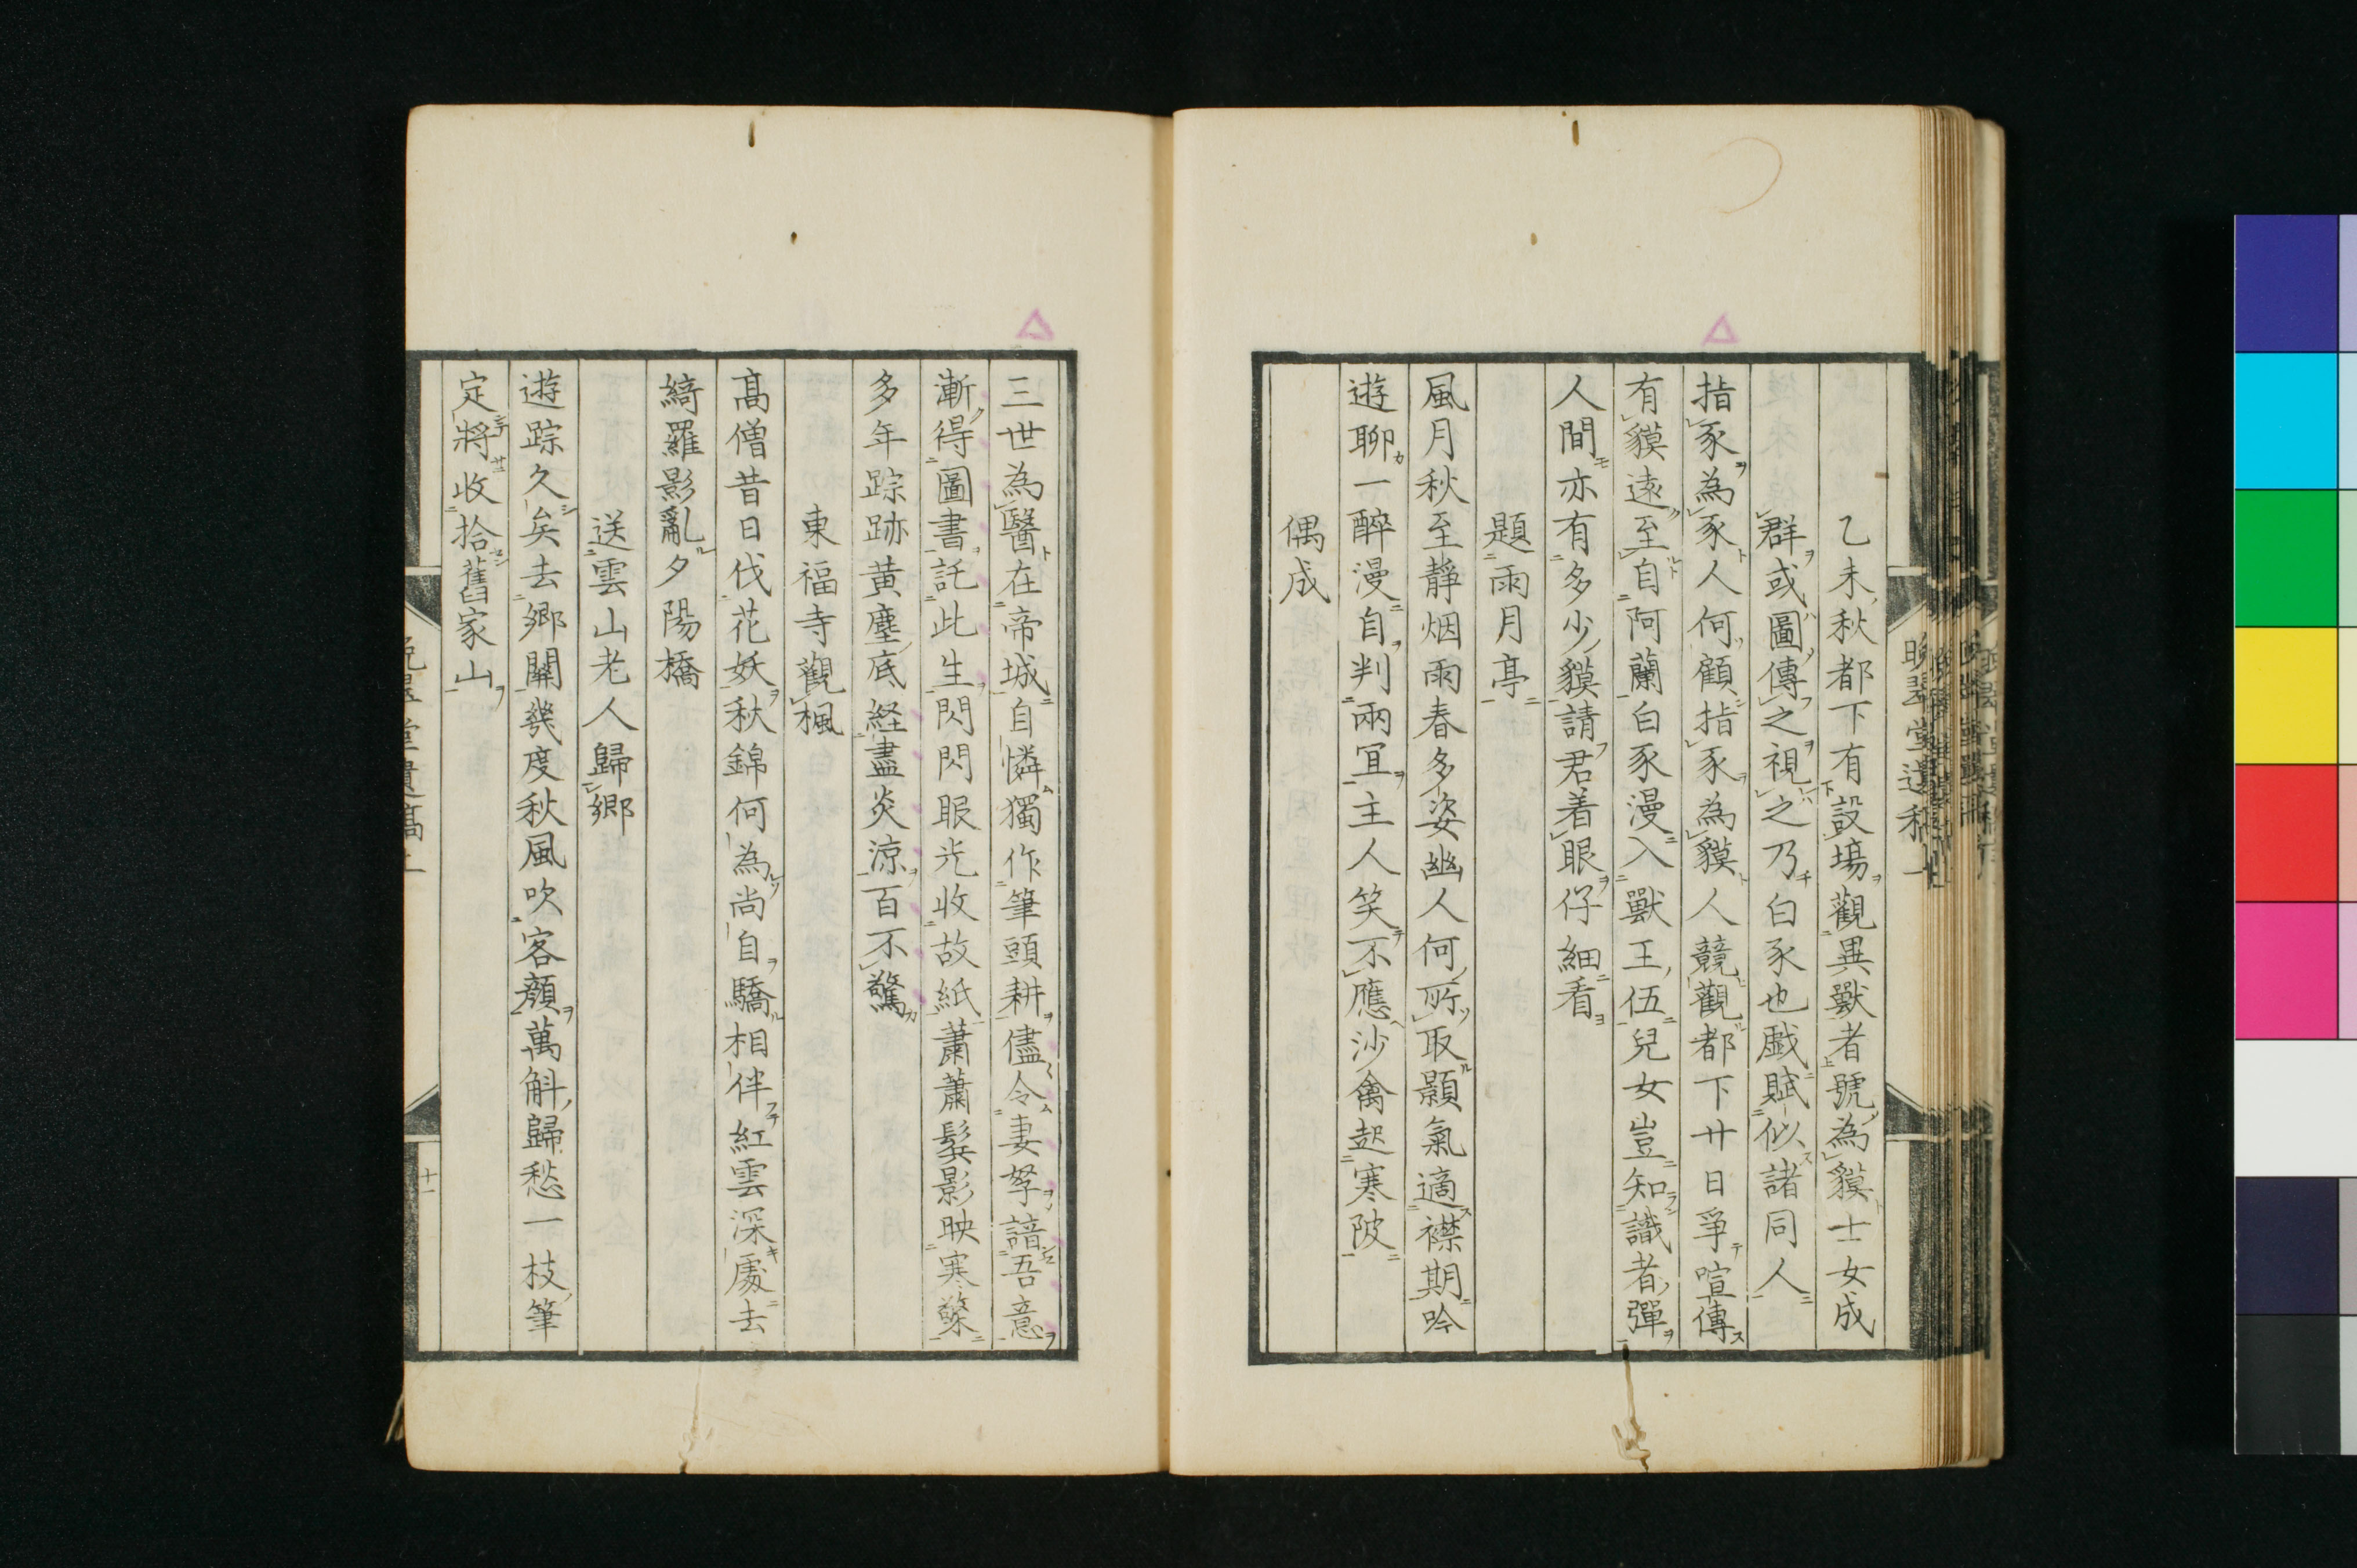 乙未秋都下有設場觀異獸者號為貘士女成
群或圖傳之視之乃白豕也戲賦似諸同人
指豕為豕人何顧指豕為貘人競觀都下廿日爭喧傳
有貘遠至自阿蘭白豕漫入獸王伍兒女豈知識者彈
人間亦有多少貘請君着眼仔細看
題雨月亭
風月秋至靜烟雨春多姿幽人何所取顥氣適襟期吟
遊聊一醉漫自判兩冝主人笑不應沙禽起寒陂
偶成
三世為醫在帝城自憐獨作筆頭耕儘令妻孥諳吾意
漸得圖書託此生閃閃眼光收故紙蕭蕭鬂影映寒檠
多年踪跡黃塵底経盡炎涼百不驚
東福寺觀楓
髙僧昔日伐花妖秋錦何為尚自驕相伴紅雲深處去
綺羅影亂夕陽橋
送雲山老人歸鄉
遊踪久矣去鄉關幾度秋風吹客顏萬斛歸愁一枝筆
定將收拾舊家山
十一